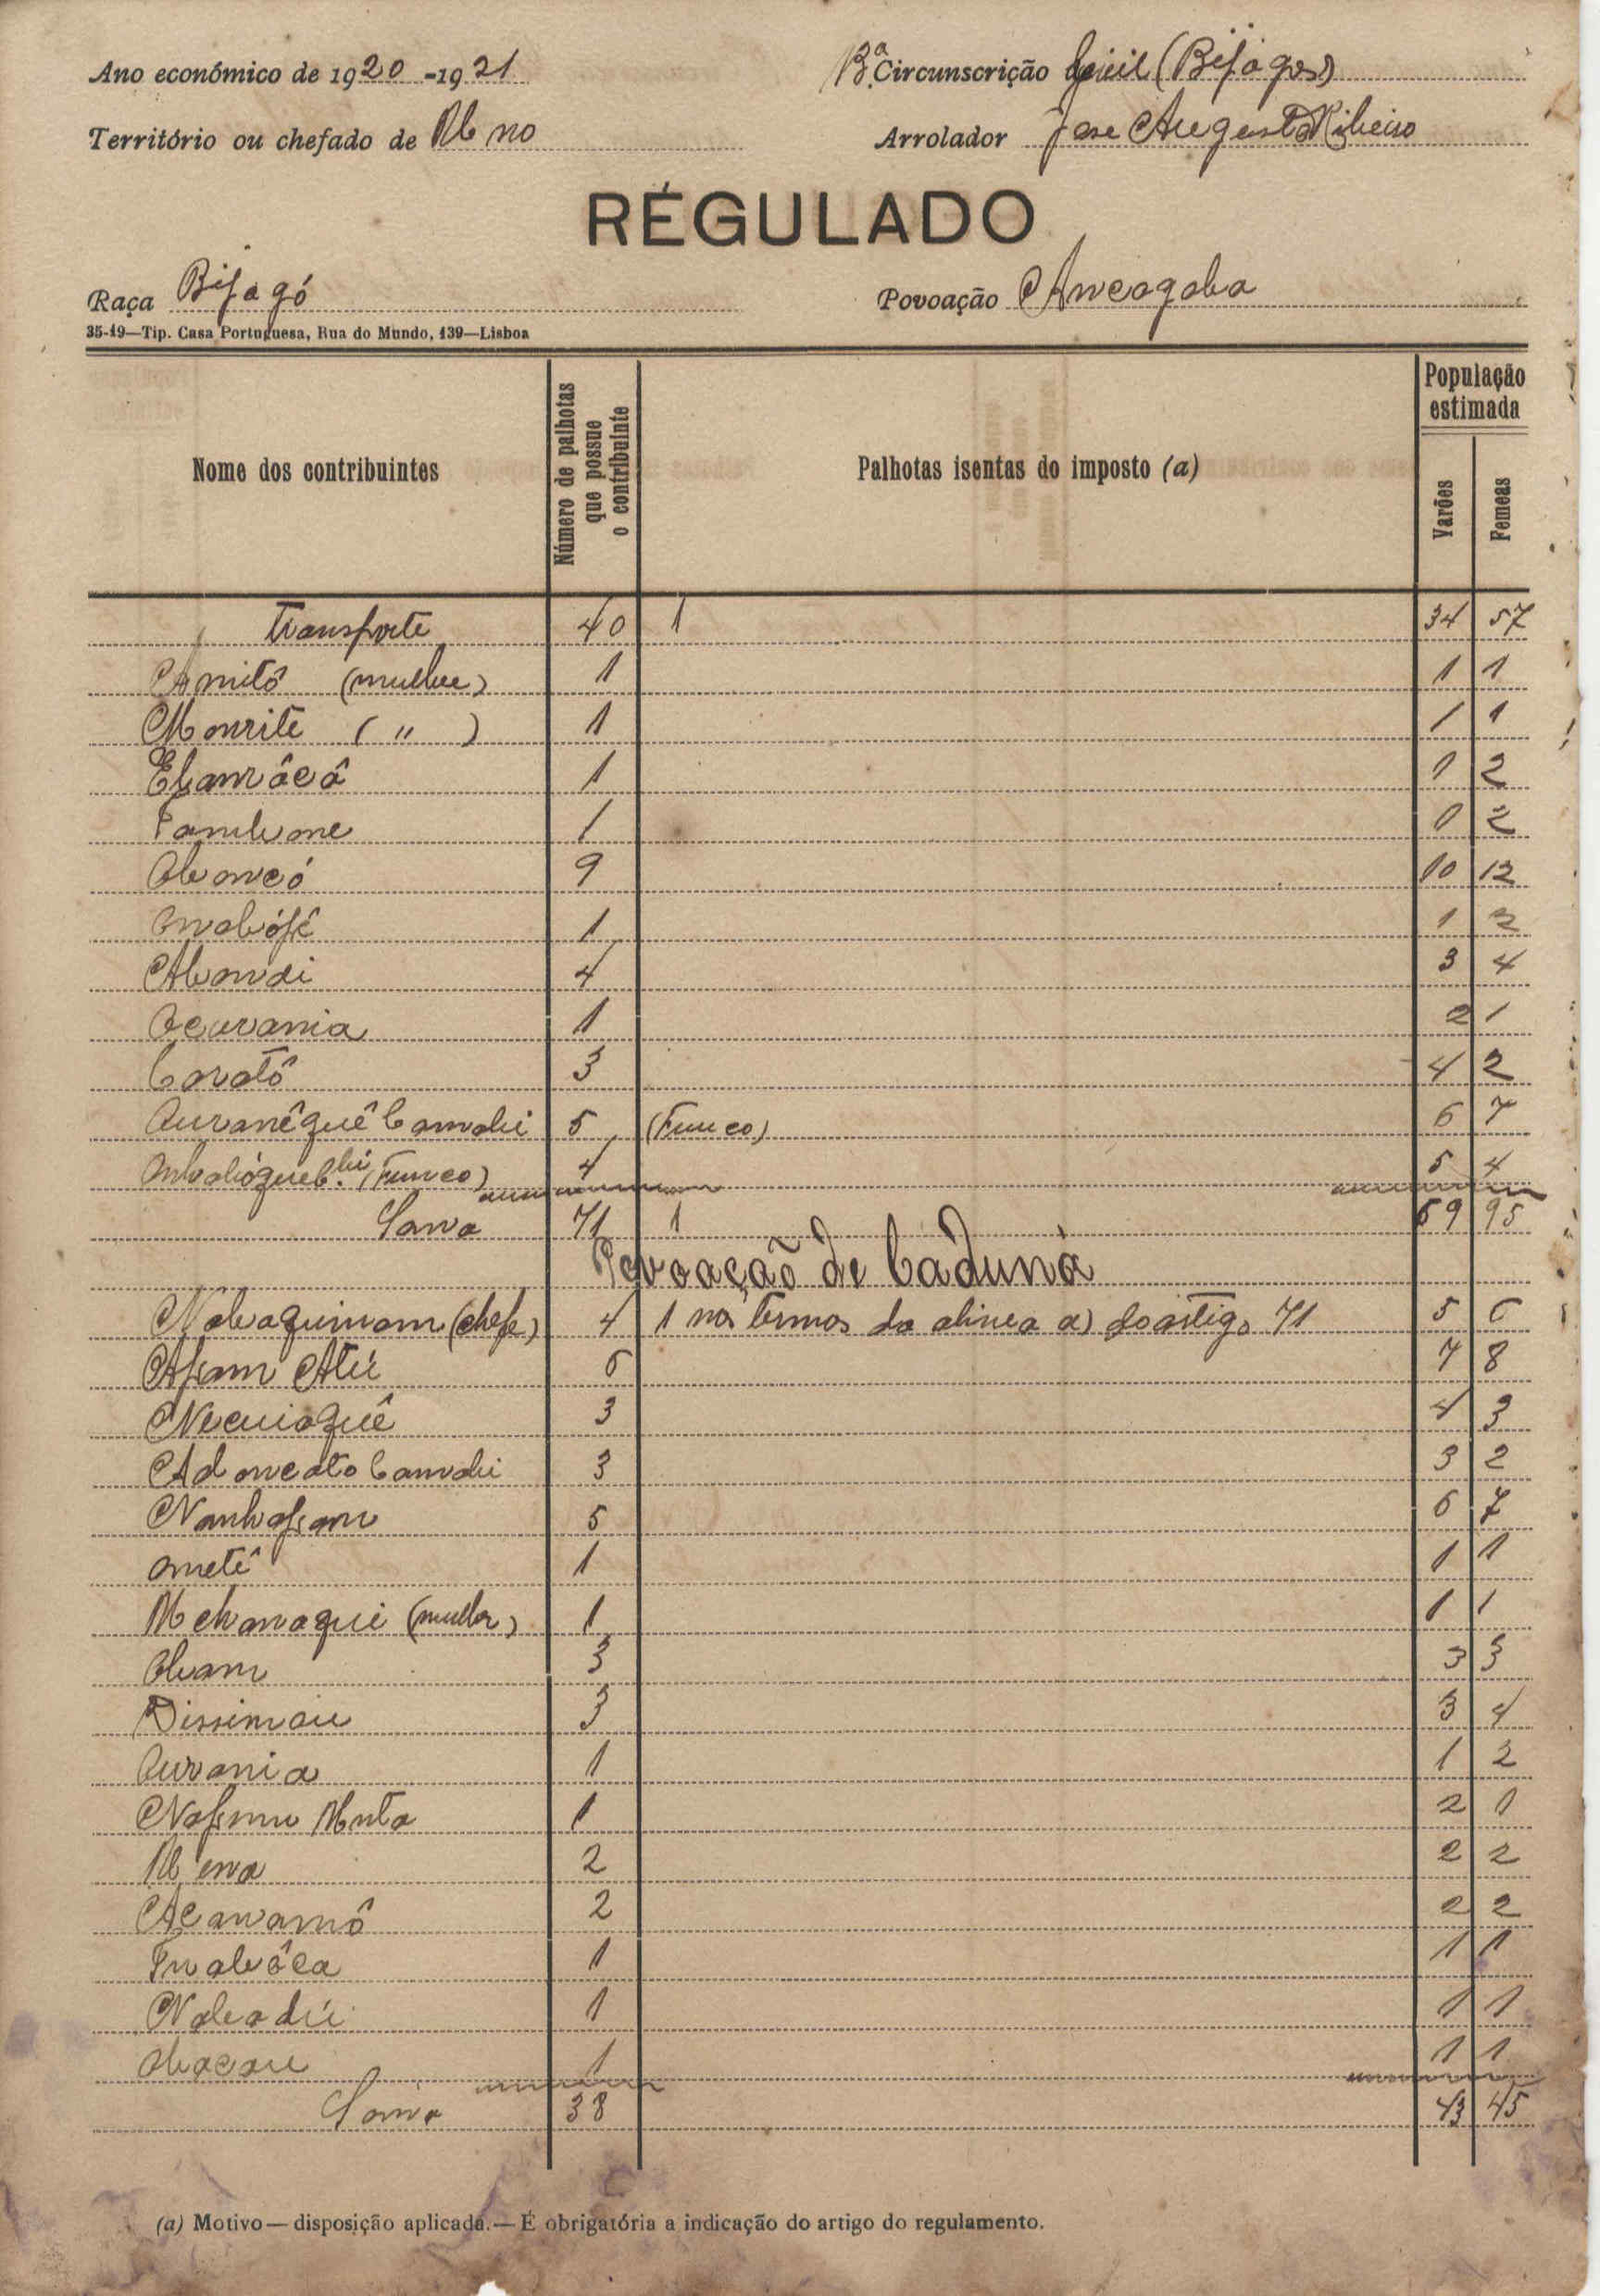 Ano económico de 1920-1921
Bª Circunscrição Civil (Bijagos)
Território ou chefado de Uno
Arrolador José Augusto Ribeiro
RÉGULADO
Raça Bijagó
Povoação Ancagaba
35-19—Tip. Casa Portuguesa, Rua do Mundo, 139—Lisboa
Nome dos contribuintes
Número de palhotas que possue o contribuinte
Palhotas isentas do imposto (a)
População estimada
Varões
Femeas
Transporte 40 1 34 57
Amitô (mulher) 1 1 1
Monrite ( " ) 1 1 1
1 1 2
1 0 2
Oboncó 9 10 12
1 1 2
Abondi 4 3 4
Ocurania 1 2 1
Coratô 3 4 2
Ouranêquê Canubi 5 (Funco) 6 7
(Funco) 4 5 4
Soma 71 1 69 95
Povoação de Caduna
Nabaquimam (chefe) 4 1 nos termos da alinea a) do artigo 71 5 6
6 7 8
Necuiaquê 3 4 3
Adoncato Canubi 3 3 2
5 6 7
Ometê 1 1 1
(mulher) 1 1 1
Obam 3 3 3
Dissimau 3 3 4
Ourania 1 1 2
1 2 1
2 2 2
Acanamô 2 2 2
1 1 1
Nabadú 1 1 1
Obacau 1 1 1
Soma 38 43 45
(a) Motivo—disposição aplicada.—É obrigatória a indicação do artigo do regulamento.